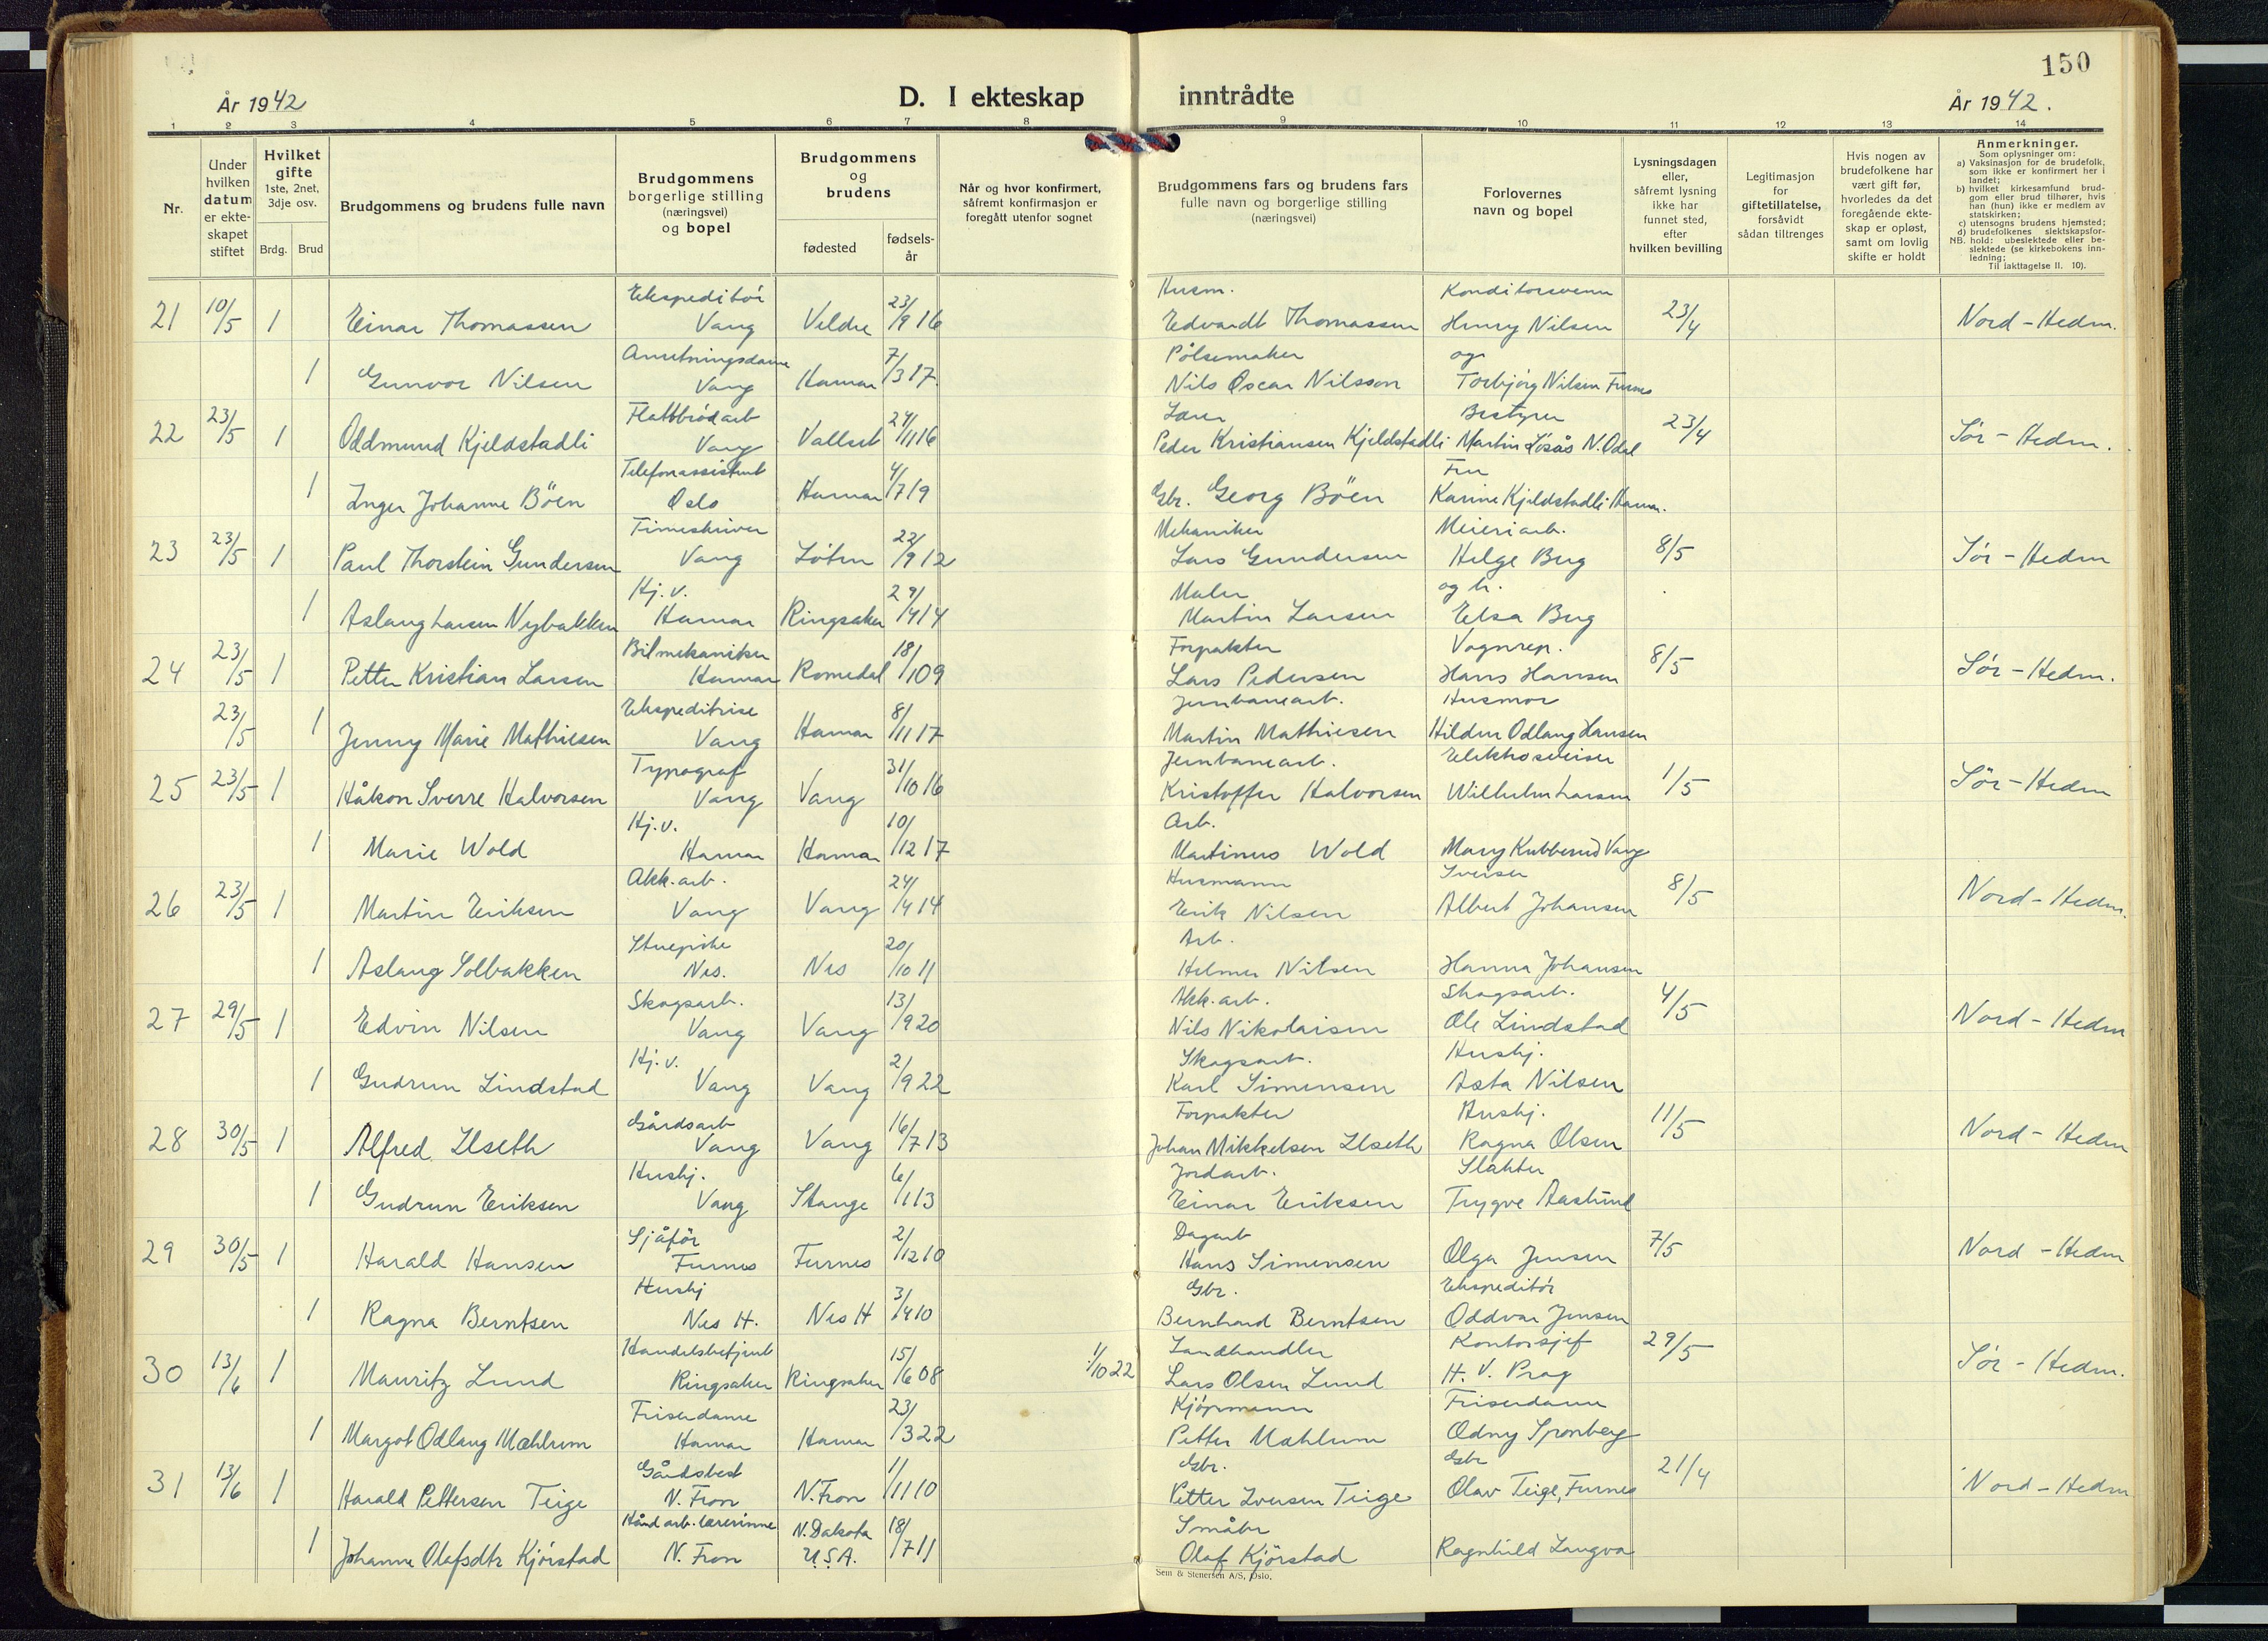 150
År 1942
D. I ekteskap inntrådte
År 1942.
1 2 3 4 5 6 7 8 9 10 11 12 13 14
Nr.
Under hvilken datum er ekteskapet stiftet
Hvilket gifte 1ste, 2net, 3dje osv.
Brdg. Brud
Brudgommens og brudens fulle navn
Brudgommens borgerlige stilling (næringsvei) og bopel
Brudgommens og brudens
fødested
fødsels-år
Når og hvor konfirmert, såfremt konfirmasjon er foregått utenfor sognet
Brudgommens fars og brudens fars fulle navn og borgerlige stilling (næringsvei)
Forlovernes navn og bopel
Lysningsdagen eller, såfremt lysning ikke har funnet sted, efter hvilken bevilling
Legitimasjon for giftetillatelse, forsåvidt sådan tiltrenges
Hvis nogen av brudefolkene har vært gift før, hvorledes da det foregående ekteskap er opløst, samt om lovlig skifte er holdt
Anmerkninger.
Som oplysninger om:
a) Vaksinasjon for de brudefolk, som ikke er konfirmert her i landet;
b) hvilket kirkesamfund brudgom eller brud tilhører, hvis han (hun) ikke er medlem av statskirken;
c) utensogns brudens hjemsted;
d) brudefolkenes slektskapsforhold: ubeslektede eller beslektede (se kirkebokens innledning;
NB.
Til iakttagelse II. 10).
21 10/5 1 Einar Thomassen Ekspeditør Vang Veldre 23/9 16 Husm. Edvardt Thomassen Konditorsvenn Henry Nilsen 23/4 Nord-Hedm.
1 Gunvor Nilsen Anretningsdame Vang Hamar 7/3 17 Pølsemaker Nils Oscar Nilsson og Torbjørg Nilsen Furnes
22 23/5 1 Oddmund Kjeldstadli Flattbrødarb Vang Vallset 24/11 16 Lærer Peder Kristiansen Kjeldstadli Bestyrer Martin Løsås N. Odal 23/4 Sør-Hedm.
1 Inger Johanne Böen Telefonassistent Oslo Hamar 4/7 19 Gbr. Georg Böen Fru Karine Kjeldstadli Hamar.
23 23/5 1 Paul Thorstein Gundersen Timeskriver Vang Løten 22/9 12 Mekaniker Lars Gundersen Meieriarb. Helge Berg 8/5 Sør-Hedm
1 Aslaug Larsen Nybakken Hj.v. Hamar Ringsaker 29/4 14 Maler Martin Larsen og h. Elsa Berg
24 23/5 1 Petter Kristian Larsen Bilmekaniker Hamar Romedal 18/1 09 Forpakter Lars Pedersen Vognrep. Hans Hansen 8/5 Sør-Hedm.
23/5 1 Jenny Marie Mathiesen Ekspeditrise Vang Hamar 8/11 17 Jernbanearb. Martin Mathiesen Husmor Hildur Odlaug Hansen
25 23/5 1 Håkon Sverre Halvorsen Typograf Vang Vang 31/10 16 Jernbanearb. Kristoffer Halvorsen Elektrosveiser Wilhelm Larsen 1/5 Sør-Hedm
1 Marie Wold Hj.v. Hamar Hamar 10/12 17 Arb. Martinus Wold Mary Kubberud Vang
26 23/5 1 Martin Eriksen Akk.arb. Vang Vang 24/4 14 Husmann Erik Nilsen Sveiser Albert Johansen 8/5 Nord-Hedm.
1 Aslaug Solbakken Stuepike Nes. Nes 20/10 11 Arb. Helmer Nilsen Hanna Johansen
27 29/5 1 Edvin Nilsen Skogsarb. Vang Vang 13/9 20 Akk.arb. Nils Nikolaisen Skogsarb. Ole Lindstad 4/5 Nord-Hedm
1 Gudrun Lindstad Hj.v. Vang Vang 2/9 22 Skogsarb. Karl Simensen Hushj. Asta Nilsen
28 30/5 1 Alfred Ilseth Gårdsarb Vang Vang 16/7 13 Forpakter Johan Mikkelsen Ilseth Hushj. Ragna Olsen 11/5 Nord-Hedm
1 Gudrun Eriksen Hushj. Vang Stange 6/1 13 Jordarb. Einar Eriksen Slakter Trygve Aaslund
29 30/5 1 Harald Hansen Sjåfør Furnes Furnes 2/12 10 Dagarb Hans Simensen Olga Jensen 7/5 Nord-Hedm
1 Ragna Berntsen Hushj Nes H. Nes H 3/4 10 Gbr. Bernhard Berntsen Ekspeditør Oddvar Jensen
30 13/6 1 Mauritz Lund Handelsbetjent Ringsaker Ringsaker 15/6 08 1/10 22 Landhandler Lars Olsen Lund Kontorsjef H. V. Prag 29/5 Sør-Hedm.
1 Margot Odlaug Mæhlum Friserdame Hamar Hamar 23/3 22 Kjøpmann Petter Mæhlum Friserdame Odny Sponberg
31 13/6 1 Harald Pettersen Teige Gårdsbest N. Fron N. Fron 1/11 10 Gbr. Petter Iversen Teige Gbr Olav Teige, Furnes 21/4 Nord-Hedm
1 Johanne Olafsdtr Kjörstad Håndarb.lærerinne N. Fron N. Dakota U.S.A. 18/7 11 Småbr Olaf Kjörstad Ragnhild Langva
Sem & Stenersen A/S, Oslo.